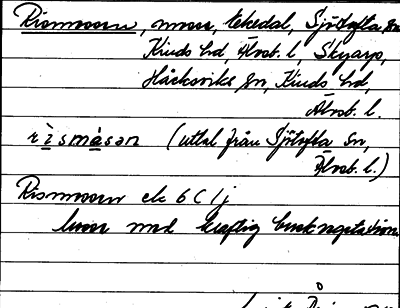 Rismossen, mosse, Ekedal, Sjötofta sn
Kinds hd, Älvsb. l., Skyarp,
Håcksviks sn, Kinds hd,
Älvsb. l.
rìsmåsən (uttal från Sjötofta sn,
Älvsb. l.)
Rismossen ek 6 C 1 j
mosse med kraftig buskvegetation